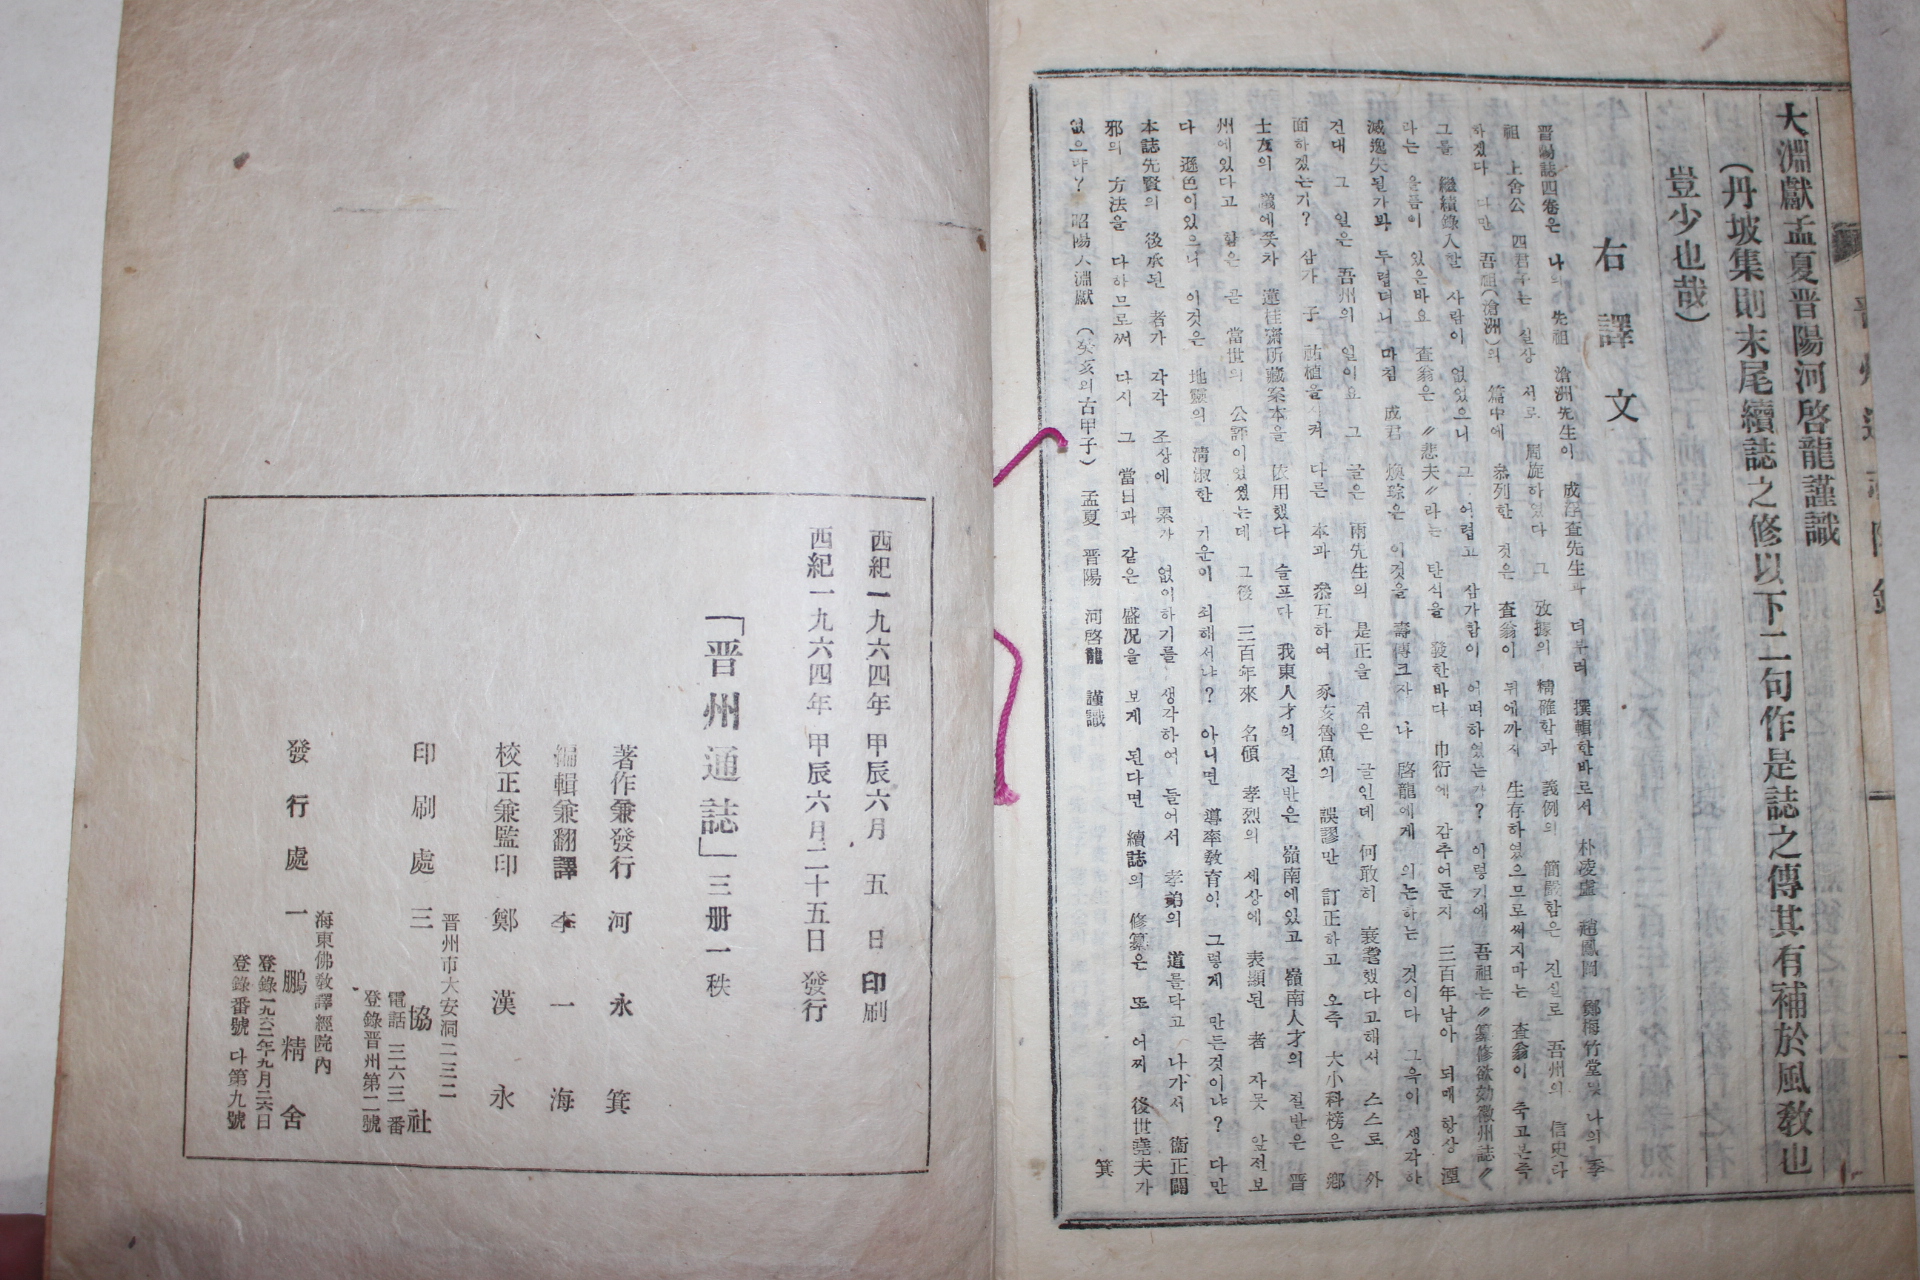 大淵獻孟夏晋陽河啓龍謹識
(丹坡集則末尾續誌之修以下二句作是誌之傳其有補於風敎也
豈少也哉)
右譯文
晋陽誌四卷은 나의 先祖 滄洲先生이 成浮査先生과 더부러 撰輯한바로서 朴凌虛 趙鳳岡 鄭梅竹堂및 나의 季
祖 上舍公 四君子는 실상 서로 周旋하였다 그 攷據의 精確함과 義例의 簡嚴함은 진실로 吾州의 信史라
하겠다 다만 吾祖(滄洲)의 篇中에 叅列한 것은 査翁이 뒤에까지 生存하였으므로써지마는 査翁이 죽고본즉
그를 繼續錄入할 사람이 없었으니 그 어렵고 삼가함이 어떠하였는가? 이렇기에 吾祖는〃纂修欲効徽州誌〃
라는 을픔이 있은바요 査翁은〃悲夫〃라는 탄식을 發한바다 巾衍에 감추어둔지 三百年남아 되매 항상 湮
滅逸失될가봐 두렵더니 마침 成君 煥琮은 이것을 壽傳크자 나 啓龍에게 의논하는 것이다 그윽이 생각하
건대 그 일은 吾州의 일이요 그 글은 兩先生의 是正을 겪은 글인데 何敢히 衰耄했다고해서 스스로 外
面하겠는가? 삼가 子 祐植을시켜 다른 本과 叅互하여 豕亥魯魚의 誤謬만 訂正하고 오즉 大小科榜은 鄕
士友의 議에쫓차 蓮桂齋所藏案本을 依用했다 슬프다 我東人才의 절반은 嶺南에있고 嶺南人才의 절반은 晋
州에있다고 함은 곧 當世의 公評이었었는데 그後 三百年來 名碩 孝烈의 세상에 表顯된 者 자못 앞전보
다 遜色이있으니 이것은 地靈의 淸淑한 기운이 쇠해서냐? 아니면 導率敎育이 그렇게 만든것이냐? 다만
本誌先賢의 後承된 者가 각각 조상에 累가 없이하기를 생각하여 들어서 孝弟의 道를닥고 나가서 衞正闢
邪의 方法을 다하므로써 다시 그 當日과 같은 盛况을 보게 된다면 續誌의 修纂은 또 어찌 後世堯夫가
없으랴? 昭陽大淵獻 (癸亥의古甲子) 孟夏 晋陽 河啓龍 謹識
箕
西紀一九六四年 甲辰六月 五日 印刷
西紀一九六四年 甲辰六月二十五日 發行
「晋州通誌」三册一秩
著作兼發行 河永箕
編輯兼翻譯 李一海
校正兼監印 鄭漢永
晋州市大安洞二三二
印刷處 三協社
電話 三六三番
登錄晋州第二號
海東佛敎譯經院內
發行處 一鵬精舍
登錄一九六二年九月二六日
登錄番號 다第九號